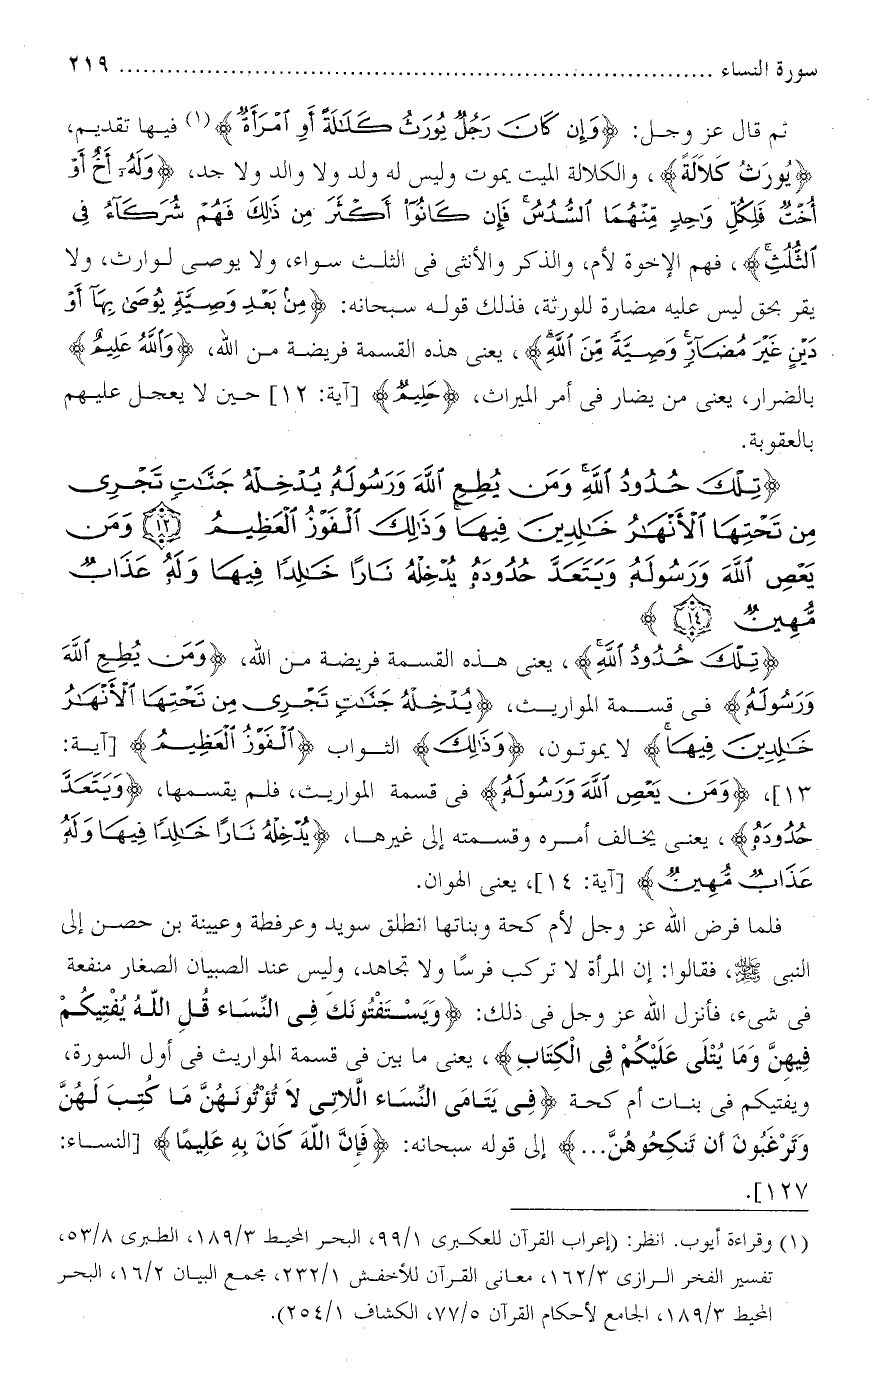 سورة النساء ............................................................ ٢١٩
ثم قال عز وجل: ﴿وَإِن كَانَ رَجُلٌ يُورَثُ كَلَٰلَةً أَوِ ٱمْرَأَةٌ﴾(١) فيها تقديم،
﴿يُورَثُ كَلاَلَةً﴾، والكلالة الميت يموت وليس له ولد ولا والد ولا جد، ﴿وَلَهُۥٓ أَخٌ أَوْ
أُخْتٌ فَلِكُلِّ وَٰحِدٍ مِّنْهُمَا ٱلسُّدُسُ ۚ فَإِن كَانُوٓا۟ أَكْثَرَ مِن ذَٰلِكَ فَهُمْ شُرَكَآءُ فِى
ٱلثُّلُثِ ۚ﴾، فهم الإخوة لأم، والذكر والأنثى فى الثلث سواء، ولا يوصى لوارث، ولا
يقر بحق ليس عليه مضارة للورثة، فذلك قوله سبحانه: ﴿مِنۢ بَعْدِ وَصِيَّةٍ يُوصَىٰ بِهَآ أَوْ
دَيْنٍ غَيْرَ مُضَآرٍّ ۚ وَصِيَّةً مِّنَ ٱللَّهِ ۗ﴾، يعنى هذه القسمة فريضة من الله، ﴿وَٱللَّهُ عَلِيمٌ﴾
بالضرار، يعنى من يضار فى أمر الميراث، ﴿حَلِيمٌ﴾ [آية: ١٢] حين لا يعجل عليهم
بالعقوبة.
﴿تِلْكَ حُدُودُ ٱللَّهِ ۚ وَمَن يُطِعِ ٱللَّهَ وَرَسُولَهُۥ يُدْخِلْهُ جَنَّٰتٍ تَجْرِى
مِن تَحْتِهَا ٱلْأَنْهَٰرُ خَٰلِدِينَ فِيهَا ۚ وَذَٰلِكَ ٱلْفَوْزُ ٱلْعَظِيمُ ١٣ وَمَن
يَعْصِ ٱللَّهَ وَرَسُولَهُۥ وَيَتَعَدَّ حُدُودَهُۥ يُدْخِلْهُ نَارًا خَٰلِدًا فِيهَا وَلَهُۥ عَذَابٌ
مُّهِينٌ ١٤﴾
﴿تِلْكَ حُدُودُ ٱللَّهِ ۚ﴾، يعنى هذه القسمة فريضة من الله، ﴿وَمَن يُطِعِ ٱللَّهَ
وَرَسُولَهُۥ﴾ فى قسمة المواريث، ﴿يُدْخِلْهُ جَنَّٰتٍ تَجْرِى مِن تَحْتِهَا ٱلْأَنْهَٰرُ
خَٰلِدِينَ فِيهَا ۚ﴾ لا يموتون، ﴿وَذَٰلِكَ﴾ الثواب ﴿ٱلْفَوْزُ ٱلْعَظِيمُ﴾ [آية:
١٣]، ﴿وَمَن يَعْصِ ٱللَّهَ وَرَسُولَهُۥ﴾ فى قسمة المواريث، فلم يقسمها، ﴿وَيَتَعَدَّ
حُدُودَهُۥ﴾، يعنى يخالف أمره وقسمته إلى غيرها، ﴿يُدْخِلْهُ نَارًا خَٰلِدًا فِيهَا وَلَهُۥ
عَذَابٌ مُّهِينٌ﴾ [آية: ١٤]، يعنى الهوان.
فلما فرض الله عز وجل لأم كحة وبناتها انطلق سويد وعرفطة وعيينة بن حصن إلى
النبى ﷺ، فقالوا: إن المرأة لا تركب فرسًا ولا تجاهد، وليس عند الصبيان الصغار منفعة
فى شىء، فأنزل الله عز وجل فى ذلك: ﴿وَيَسْتَفْتُونَكَ فِى النِّسَاء قُلِ اللَّهُ يُفْتِيكُمْ
فِيهِنَّ وَمَا يُتْلَى عَلَيْكُمْ فِى الْكِتَابِ﴾، يعنى ما بين فى قسمة المواريث فى أول السورة،
ويفتيكم فى بنات أم كحة ﴿فِى يَتَامَى النِّسَاء الَّلاتِى لاَ تُؤْتُونَهُنَّ مَا كُتِبَ لَهُنَّ
وَتَرْغَبُونَ أَن تَنكِحُوهُنَّ...﴾ إلى قوله سبحانه: ﴿فَإِنَّ اللَّهَ كَانَ بِهِ عَلِيمًا﴾ [النساء:
١٢٧].
(١) وقراءة أيوب. انظر: (إعراب القرآن للعكبرى ٩٩/١، البحر المحيط ١٨٩/٣، الطبرى ٥٣/٨،
تفسير الفخر الرازى ١٦٢/٣، معانى القرآن للأخفش ٢٣٢/١، مجمع البيان ١٦/٢، البحر
المحيط ١٨٩/٣، الجامع لأحكام القرآن ٧٧/٥، الكشاف ٢٥٤/١).